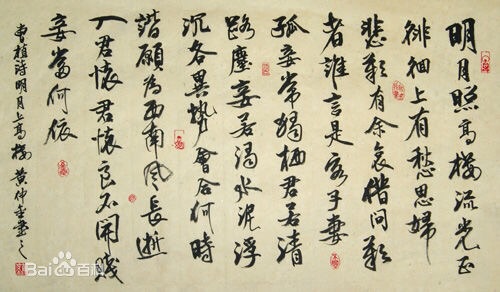 明月照高楼流光正
徘徊上有愁思婦
悲歎有余哀借问歎
者誰言是客子妻
孤妾常獨栖君若清
路塵妾若濁水泥浮
沉各異勢會合何時
諧願為西南风長逝
入君懷君懷良不開賤
妾當何依
曹植诗明月上高楼 黄仲
Bai百科